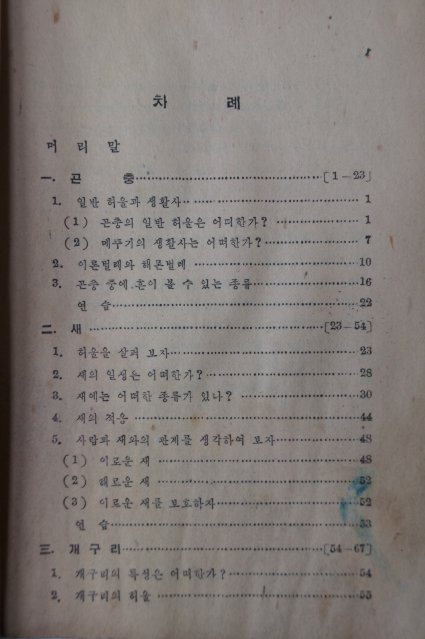 차 례
머 리 말
一. 곤 충 [1-23]
1. 일반 허울과 생활사 1
(1) 곤충의 일반 허울은 어떠한가? 1
(2) 메뚜기의 생활사는 어떠한가? 7
2. 이론벌레와 해론벌레 10
3. 곤충 중에 흔이 볼 수 있는 종류 16
연 습 22
二. 새 [23-54]
1. 허울을 살펴 보자 23
2. 새의 일생은 어떠한가? 28
3. 새에는 어떠한 종류가 있나? 30
4. 새의 적응 44
5. 사람과 새와의 관계를 생각하여 보자 48
(1) 이로운 새 48
(2) 해로운 새 52
(3) 이로운 새를 보호하자 52
연 습 53
三. 개 구 리 [54-67]
1. 개구리의 특성은 어떠한가? 54
2. 개구리의 허울 55